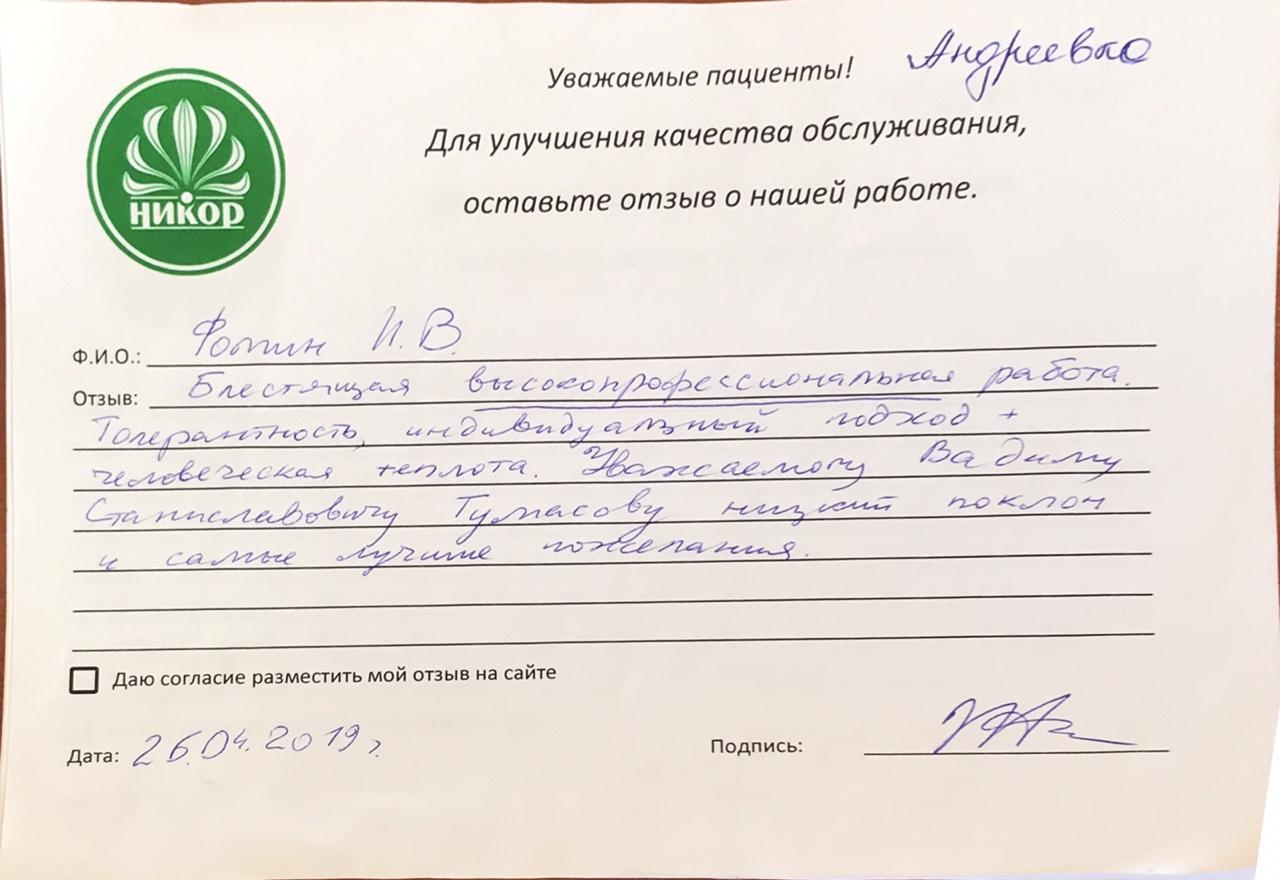 Андреевка
Уважаемые пациенты!
Для улучшения качества обслуживания,
оставьте отзыв о нашей работе.
НИКОР
Ф.И.О.: Фомин И. В.
Отзыв: Блестящая высокопрофессиональная работа.
Толерантность, индивидуальный подход +
человеческая теплота. Уважаемому Вадиму
Станиславовичу Тумасову низкий поклон
и самые лучшие пожелания.
Даю согласие разместить мой отзыв на сайте
Дата: 26.04.2019 г.
Подпись: